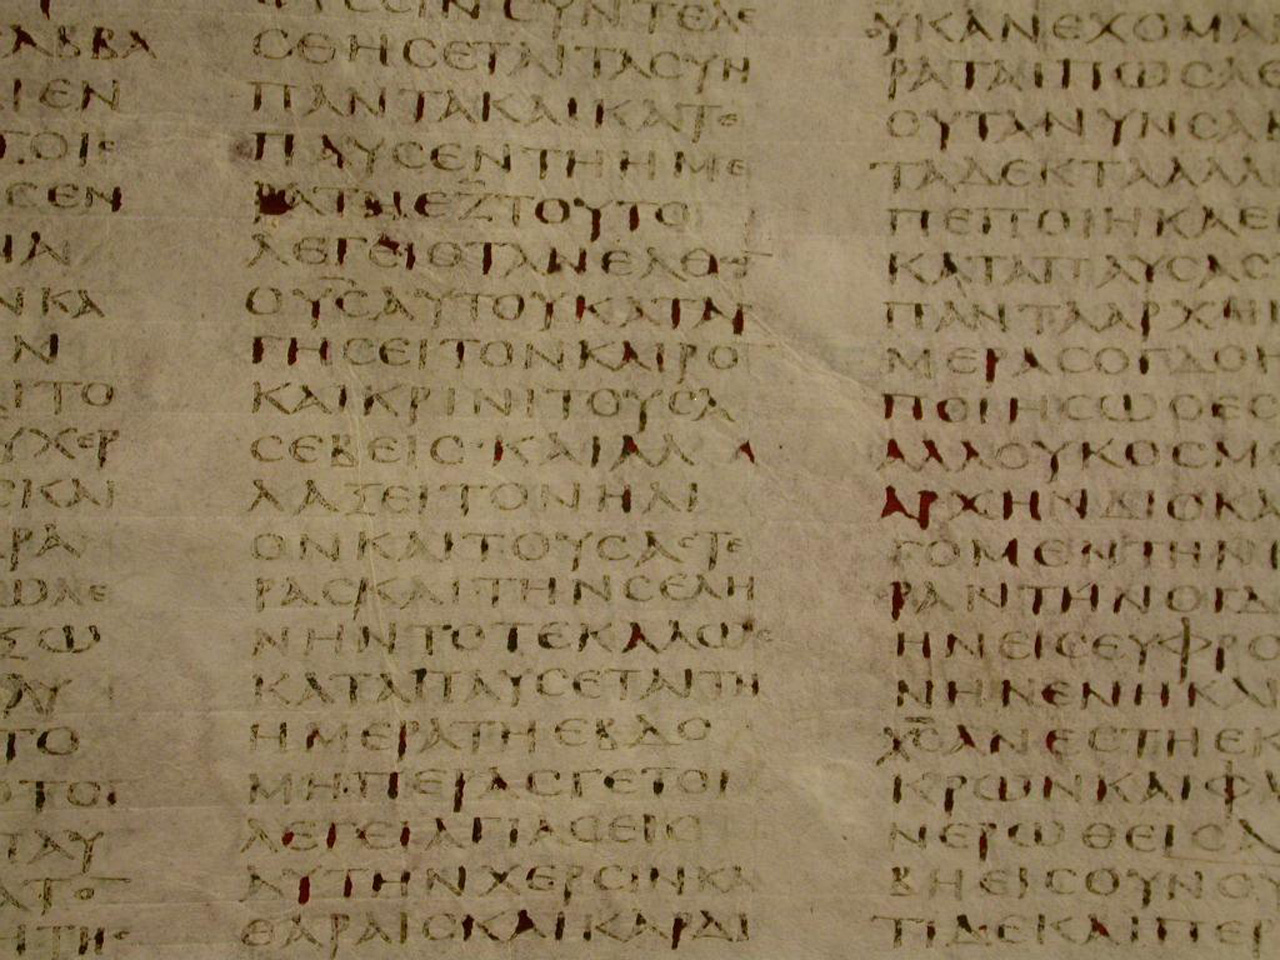 ΑΒΒΑ
ΙΕΝ
ΤΟΙ
ϹΕΝ
ΙΑ
ΝΚΑ
Ν
ΙΤΟ
ΥΧΕΡ
ϹΚΑΙ
ΡΑ
ΞΩ
ΤΟ
ΟΤΟΙ
ΤΑΥ
ϹΙΝϹΥΝΤΕΛΕ
ϹΘΗϹΕΤΑΙΤΑϹΥΝ
ΠΑΝΤΑΚΑΙΚΑΤΕ
ΠΑΥϹΕΝΤΗΗΜΕ
ΡΑΤΗΕΖΤΟΥΤΟ
ΛΕΓΕΙΟΤΑΝΕΛΘ
ΟΥϹΑΥΤΟΥΚΑΤΑΡ
ΓΗϹΕΙΤΟΝΚΑΙΡΟ
ΚΑΙΚΡΙΝΙΤΟΥϹΑ
ϹΕΒΕΙϹ·ΚΑΙΑΛ
ΛΑΞΕΙΤΟΝΗΛΙ
ΟΝΚΑΙΤΟΥϹΑϹΤΕ
ΡΑϹΚΑΙΤΗΝϹΕΛΗ
ΝΗΝΤΟΤΕΚΑΛΩϹ
ΚΑΤΑΠΑΥϹΕΤΑΙΤΗ
ΗΜΕΡΑΤΗΕΒΔΟ
ΜΗΠΕΡΑϹΓΕΤΟΙ
ΛΕΓΕΙΑΓΙΑϹΕΙϹ
ΑΥΤΗΝΧΕΡϹΙΝΚΑ
ΘΑΡΑΙϹΚΑΙΚΑΡΔΙ
ΥΚΑΝΕΧΟΜΑΙ
ΡΑΤΑΙΠΩϹΛΕ
ΟΥΤΑΝΥΝϹΑΒ
ΤΑΔΕΚΤΑΑΛΛΑ
ΠΕΠΟΙΗΚΑΕ
ΚΑΤΑΠΑΥϹΑϹ
ΠΑΝΤΑΑΡΧΗΝ
ΜΕΡΑϹΟΓΔΟΗ
ΠΟΙΗϹΩΟΕϹ
ΑΛΛΟΥΚΟϹΜΟ
ΑΡΧΗΝΔΙΟΚΑ
ΓΟΜΕΝΤΗΝΗ
ΡΑΝΤΗΝΟΓΔ
ΗΝΕΙϹΕΥΦΡΟ
ΝΗΝΕΝΗΚΑΙ
ΑΝΕϹΤΗΕΚ
ΚΡΩΝΚΑΙΦΑ
ΝΕΡΩΘΕΙϹΑ
ΒΗΕΙϹΟΥΝΟΥ
ΤΙΔΕΚΑΙΠΕΡ